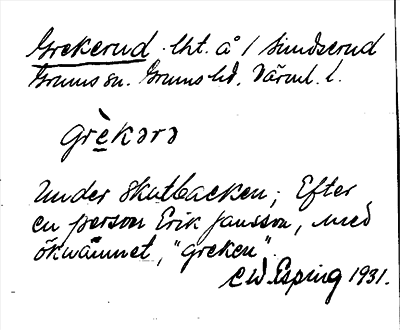 Grekerud lht. å 1 Sundserud
Grums sn. Grums hd. Värml. l.
grèkərə
Under Skutbacken; Efter
en person Erik Jansson, med
öknamnet, "Greken".
C W. Esping 1931.